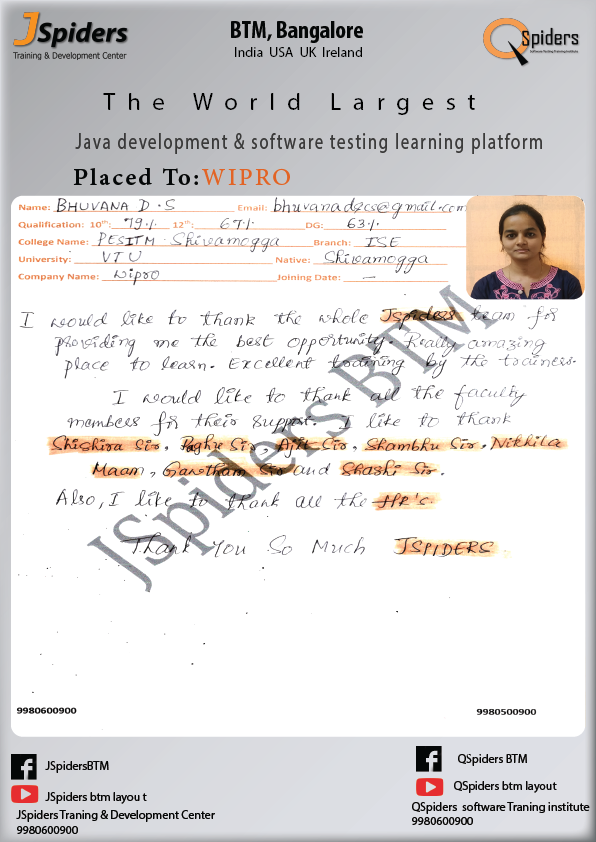 JSpiders
Training & Development Center
BTM, Bangalore
India USA UK Ireland
QSpiders
Software Testing Training Institute
The World Largest
Java development & software testing learning platform
Placed To: WIPRO
Name: BHUVANA D.S Email: bhuvanadscs@gmail.com
Qualification: 10th: 79% 12th: 67% DG: 63%
College Name: PESITM - Shivamogga Branch: ISE
University: VTU Native: Shivamogga
Company Name: Wipro Joining Date: —
I would like to thank the whole Jspiders team for
providing me the best opportunity. Really amazing
place to learn. Excellent training by the trainers.
I would like to thank all the faculty
members for their support. I like to thank
Shishira Sir, Raghu Sir, Ajit Sir, Shambhu Sir, Nikhila
Maam, Gawtham Sir and Shashi Sir.
Also, I like to thank all the HR's.
Thank You So Much JSPIDERS
JSpiders BTM
9980600900 9980500900
JSpidersBTM
JSpiders btm layou t
JSpiders Traning & Development Center
9980600900
QSpiders BTM
QSpiders btm layout
QSpiders software Traning institute
9980600900